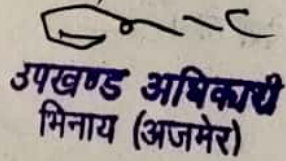 उपखण्ड अधिकारी
भिनाय (अजमेर)